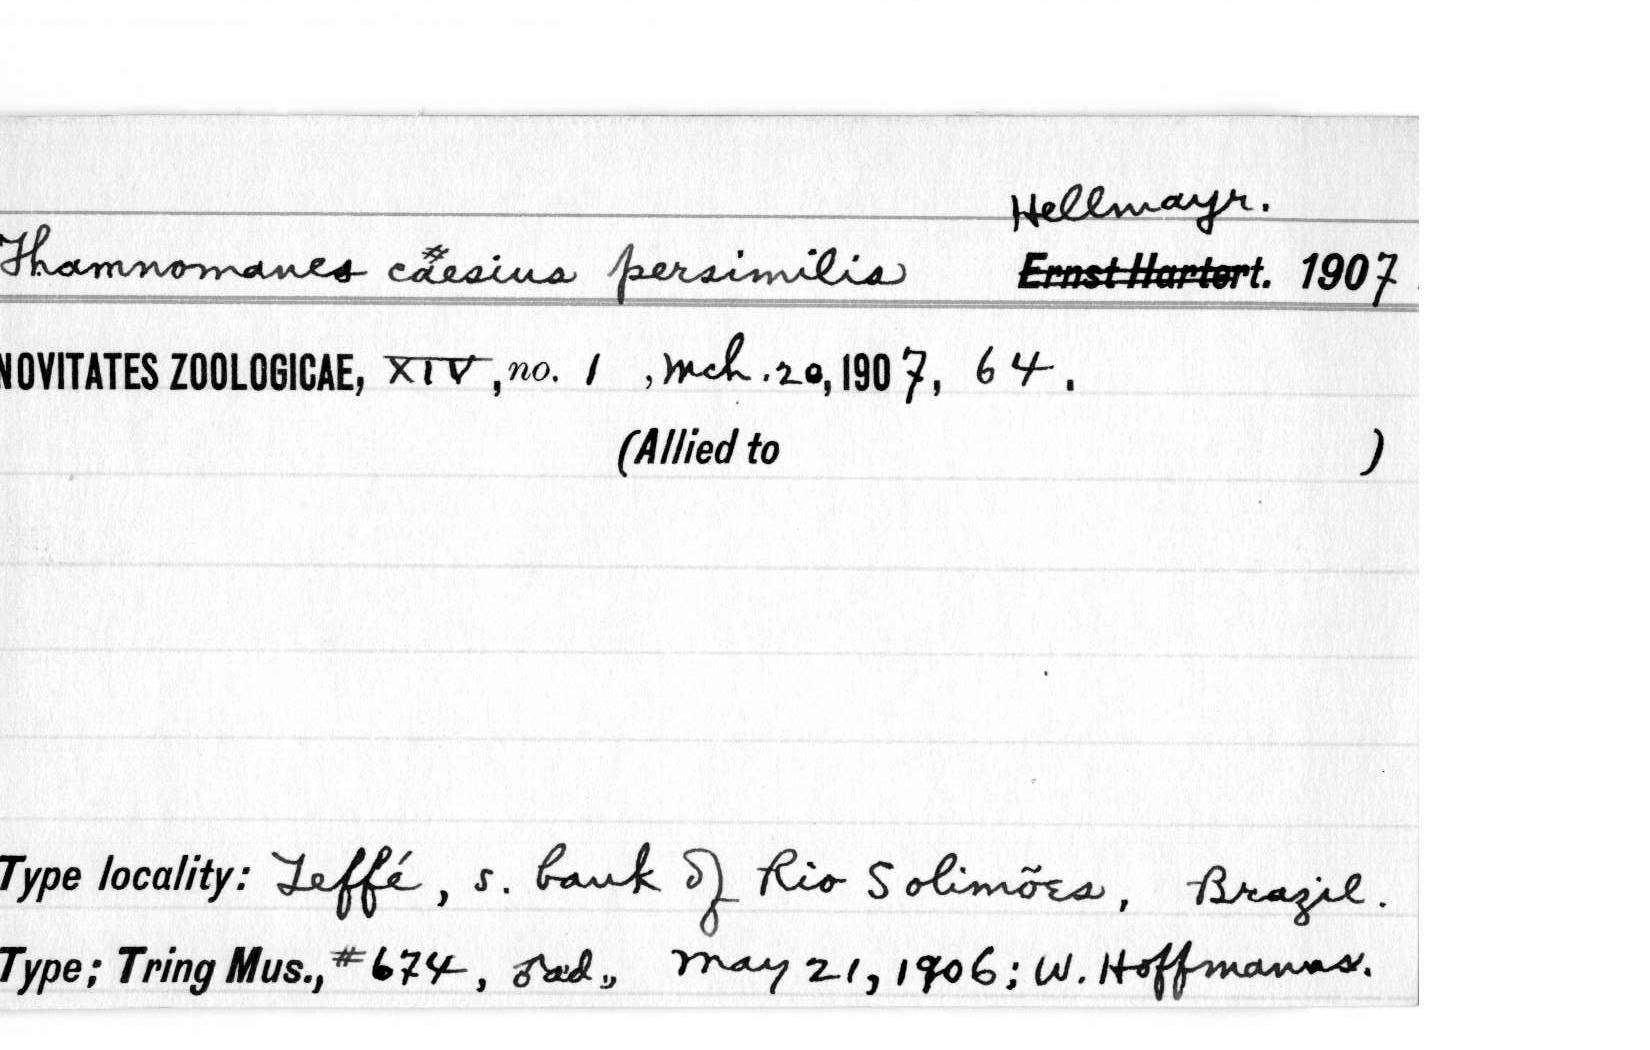 Hellmayr.
Thamnomanes caesius persimilis Ernst Hartert. 1907
NOVITATES ZOOLOGICAE, XIV, no. 1 , Mch. 20, 1907, 64.
(Allied to )
Type locality: Teffé, s. bank of Rio Solimões, Brazil.
Type; Tring Mus., #674, ♂ ad., May 21, 1906; W. Hoffmanns.